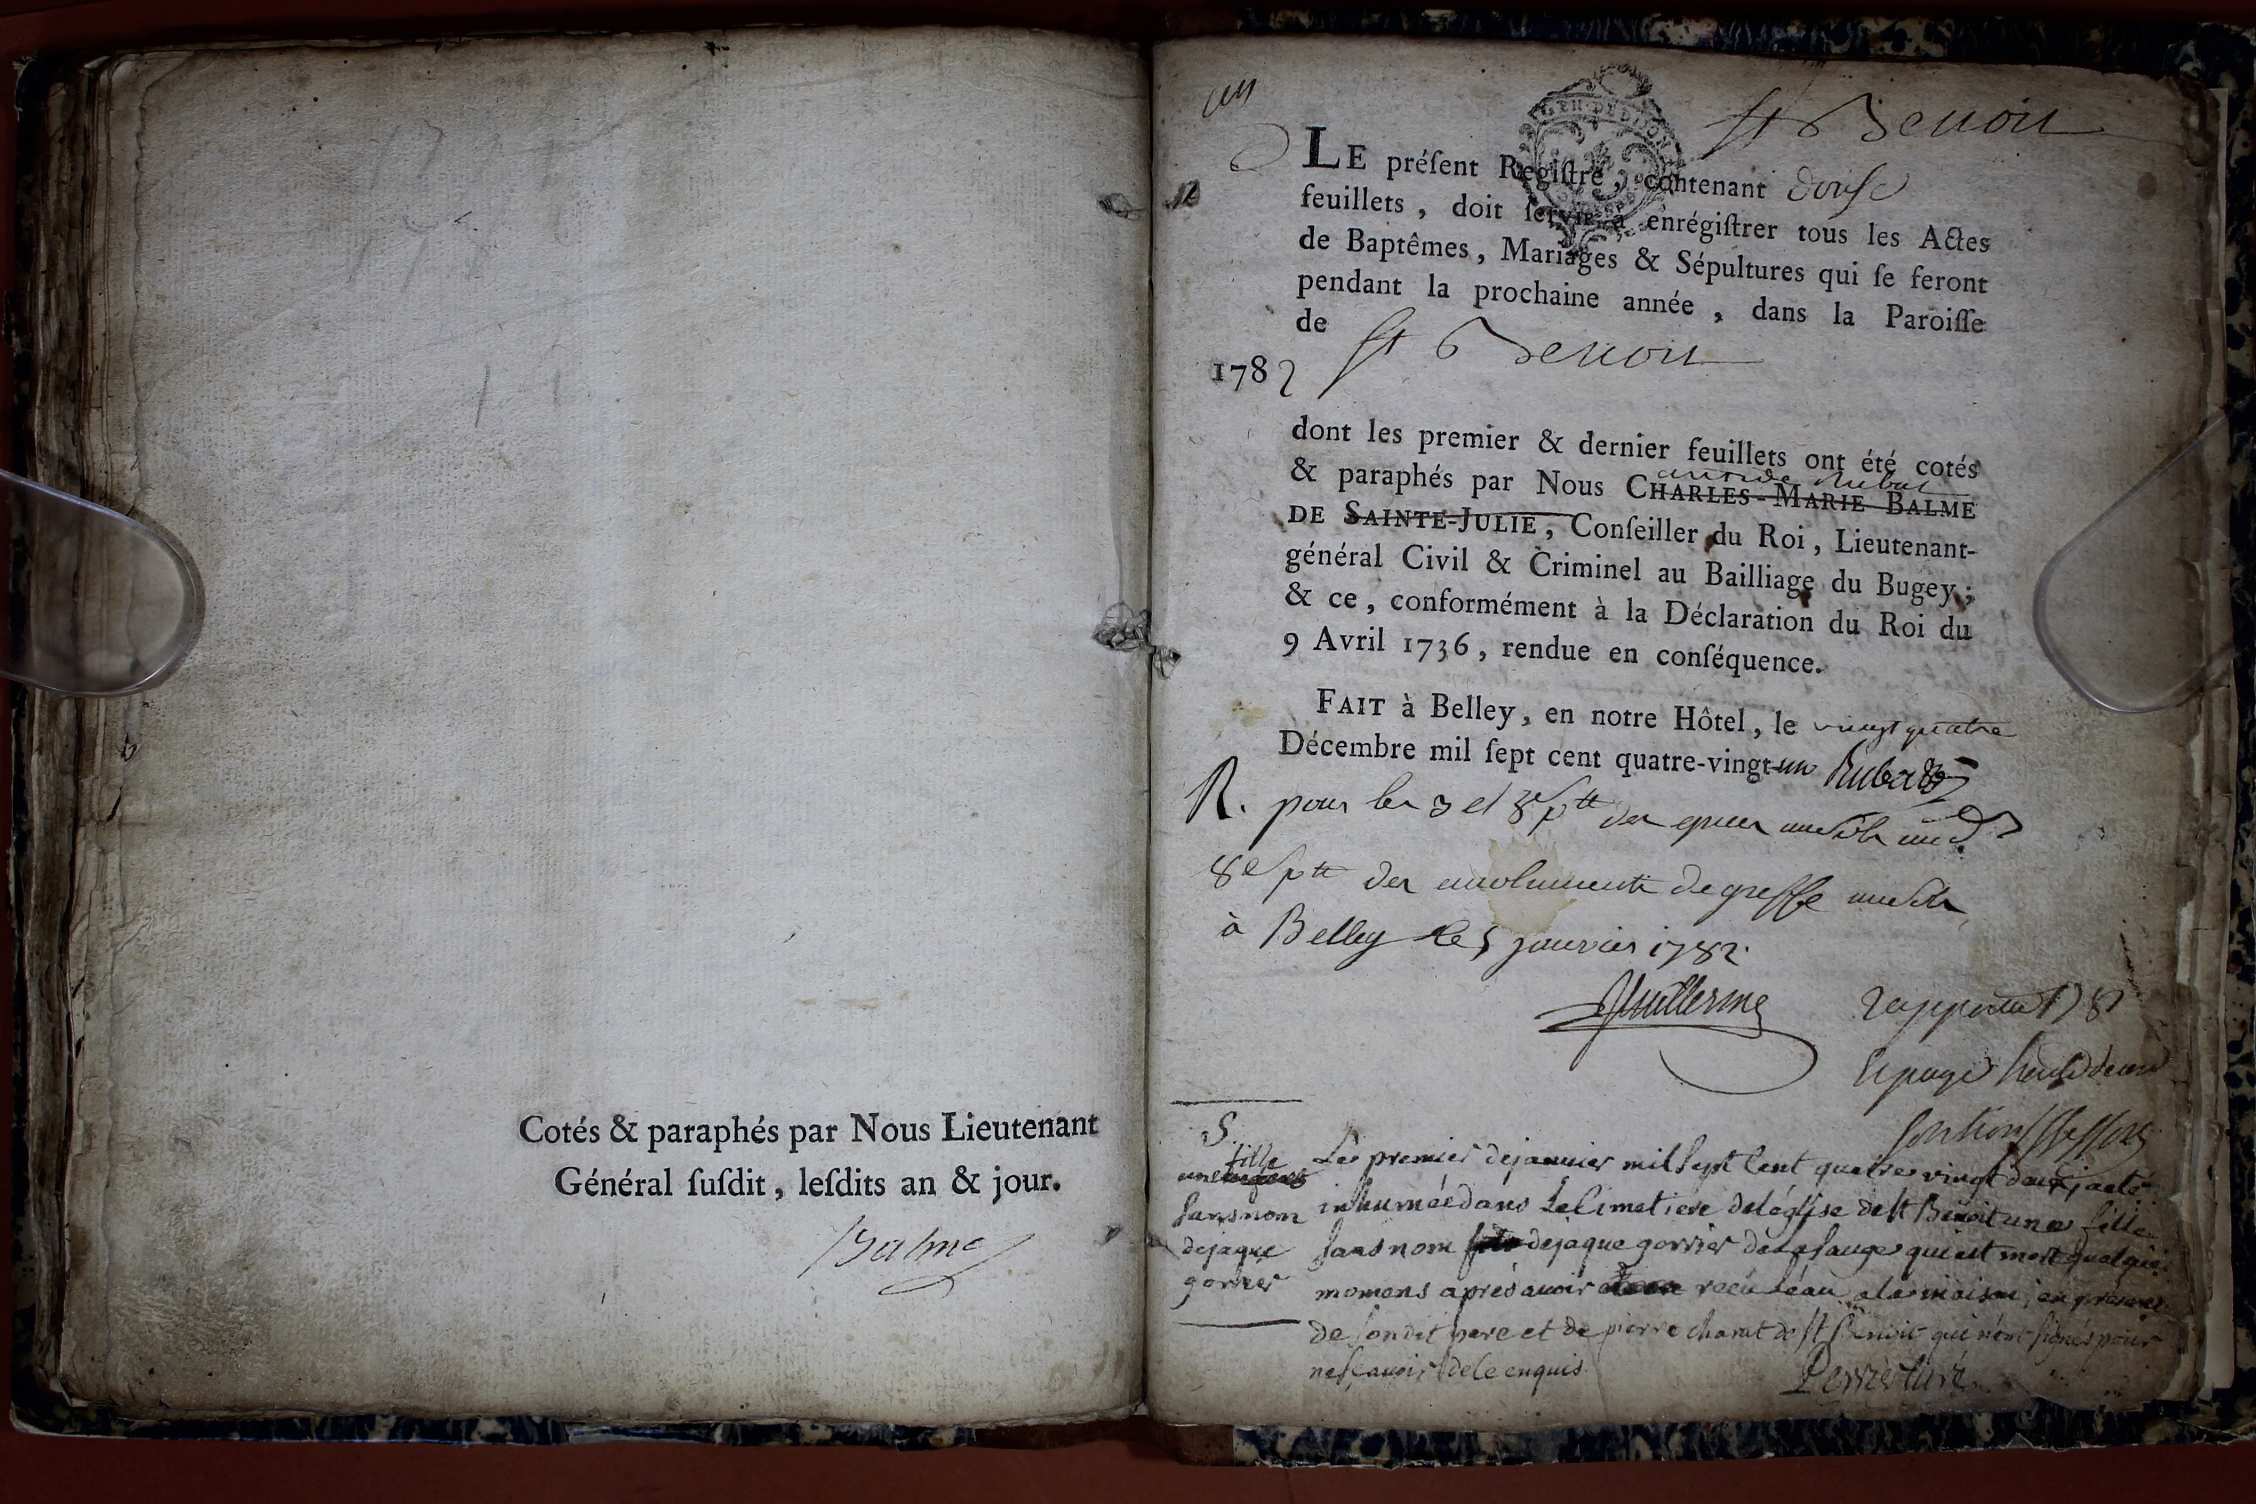 Cotés & paraphés par Nous Lieutenant
Général ſuſdit, leſdits an & jour.
Balme
un
St Benoit
LE préſent Regiſtre, contenant douſe
feuillets, doit ſervir à enrégiſtrer tous les Actes
de Baptêmes, Mariages & Sépultures qui ſe feront
pendant la prochaine année, dans la Paroiſſe
de St Benoit
1782
dont les premier & dernier feuillets ont été cotés
& paraphés par Nous CHARLES-MARIE BALME
DE SAINTE-JULIE, Conſeiller du Roi, Lieutenant-
général Civil & Criminel au Bailliage du Bugey;
& ce, conformément à la Déclaration du Roi du
9 Avril 1736, rendue en conſéquence.
FAIT à Belley, en notre Hôtel, le vingt quatre
Décembre mil ſept cent quatre-vingt-un
R. pour les 3 et
des emolumentz de greffe
à Belley le 5 janvier 1782.
Guillerme
1782
S.
fille
une
sans nom
dejaque
gorrier
Le premier dejanvier mil sept cent quatre vingt deux jaeté
inhumée dans Le Cimetiére deléglise de St Benoit une fille
sans nom dejaque gorrier de la sauge qui est mort quelque
momens aprés avoir recu leau ala maison, en presence
de son dit pere et de pierre charut de St Benoit qui n'ont signés pour
nesçavoir dece enquis
Perret curé